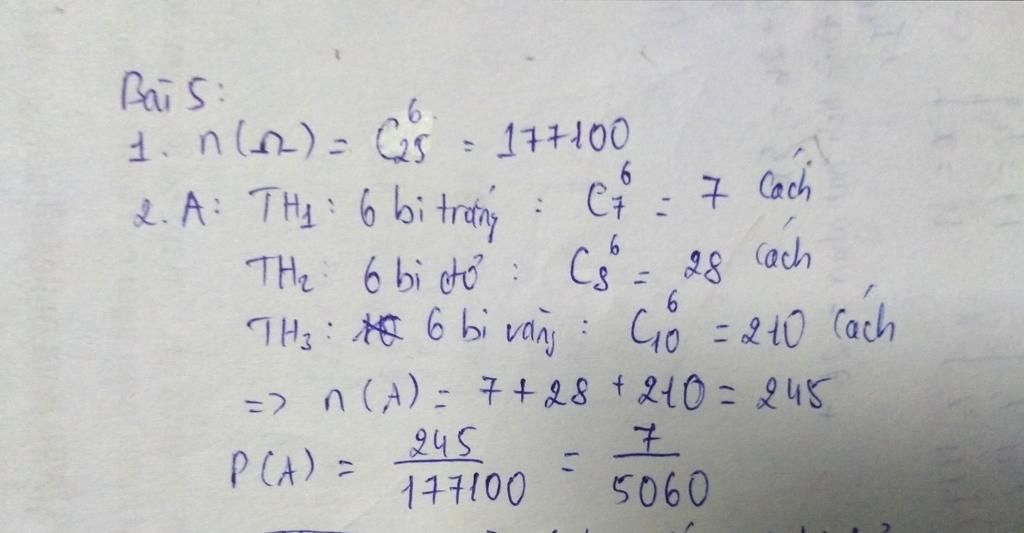 Bài 5:
1. n(Ω) = C₂₅⁶ = 177100
2. A: TH₁: 6 bi trắng : C₇⁶ = 7 cách
TH₂: 6 bi đỏ : C₈⁶ = 28 cách
TH₃: 6 bi vàng : C₁₀⁶ = 210 cách
=> n(A) = 7 + 28 + 210 = 245
P(A) = 245/177100 = 7/5060